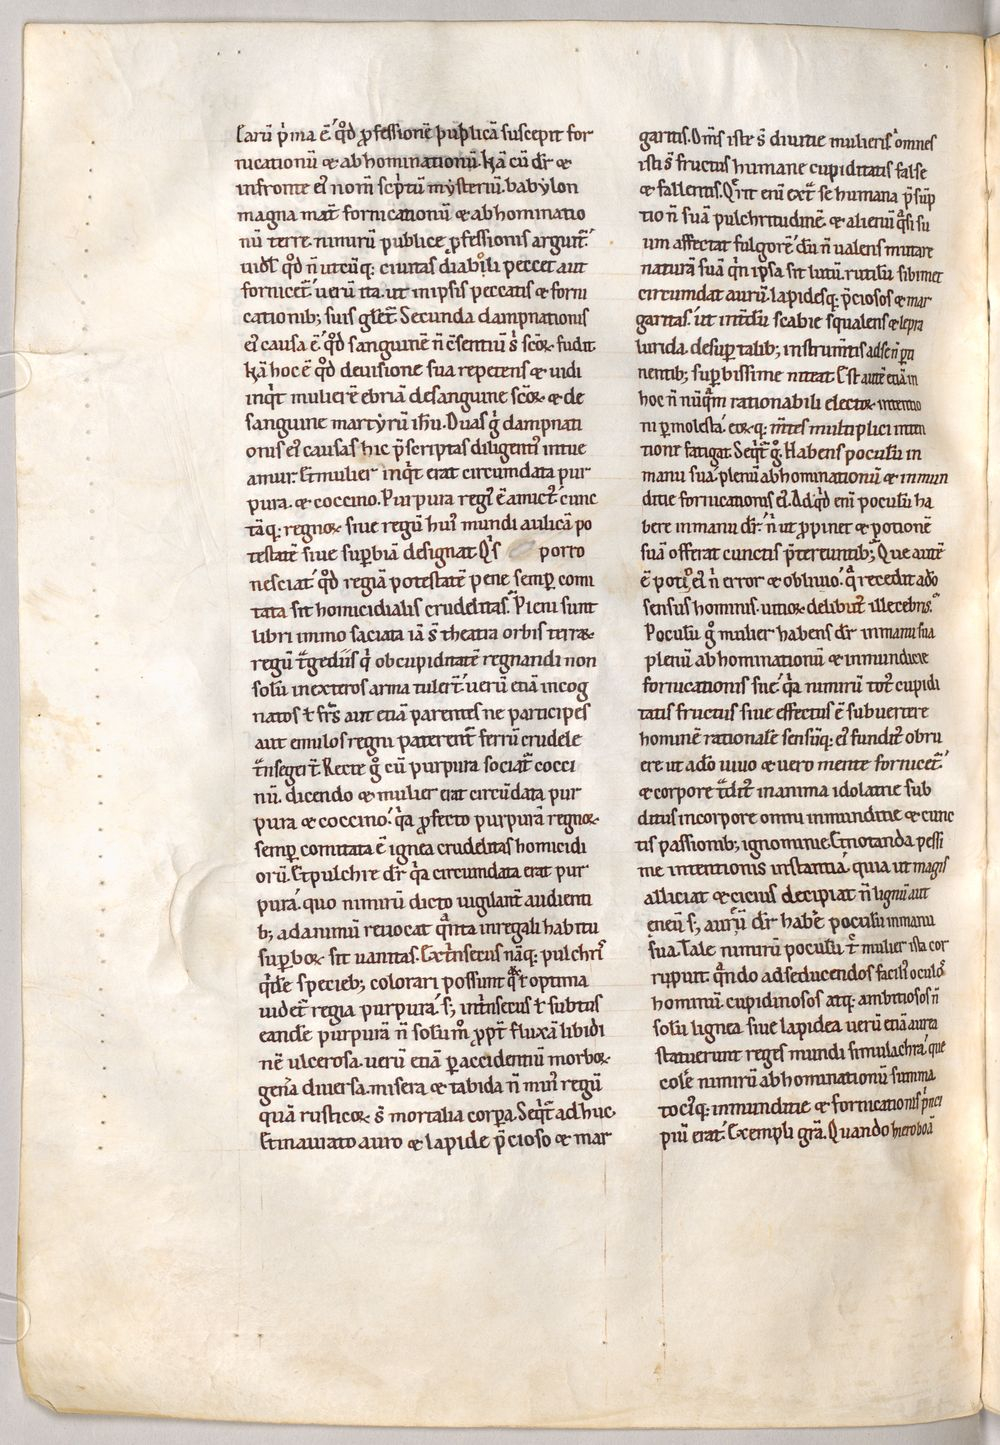 Carū p̍ma ē qd̊ ꝓfessionē puplicā suscepit for
nicationū & abhominationū. Nā cū dr̄ &
in fronte ei᷒ nom̄ sc̍ptū mysteriū. babylon
magna mat̄ fornicationū & abhominatio
nū terre. nimirū publice ꝓfessionis arguit̄.
uidl̄ qd̊ n̄ utcūq; ciuitas diaboli peccet aut
fornicet̄. uerū ita. ut in ipsis peccatis & forni
cationib; suis gl̄et̄. Secunda dampnationis
ei᷒ causa ē. qd̊ sanguinē n̄ c̄sentiū s̍ sc̄oꝝ fudit.
Nā hoc ē qd̊ de uisione sua repetens & uidi
inq̍t mulierē ebriā de sanguine sc̄oꝝ & de
sanguine martyrū ih̄u. Duas g̍ dampnati
onis ei᷒ causas hic p̄scriptas diligenti᷒ intue
amur. Et mulier inq̍t erat circumdata pur
pura. & coccino. Purpura regi᷒ ē amict᷒. cunc
tāq; regnoꝝ siue regū hui᷒ mundi aulicā po
testatē siue sup̱biā designat. Q̍s porro
nesciat. qd̊ regiā potestatē pene semp̱ comi
tata sit homicidialis crudelitas. Pleni sunt
libri immo saciata iā s̄ theatra orbis terraꝝ
regū tᷓgediis q̍ ob cupiditatē regnandi non
solū in exteros arma tuler̄t. uerū etiā incog
natos ł fr̄s aut etiā parentes ne participes
aut emulos regni paterent̄ ferrū crudele
tᷓnseger̄t. Recte g̊ cū purpura sociat̄ cocci
nū. dicendo & mulier erat circūdata pur
pura & coccino. qᷓa ꝓfecto purpurā regnoꝝ
semp̱ comitata ē ignea crudelitas homicidi
orū. Et pulchre dr̄ qᷓa circumdata erat pur
pura. quo nimirū dicto uigilant̄ audienti
b; ad animū reuocat qᷓnta in regali habitu
sup̱boꝝ sit uanitas. Ext̍nsecus nāq; pulchri᷒
q̍dē specieb; colorari possunt qᷓ ł optima
uidet̄ regia purpura. s; int̍nsecus ł subtus
eandē purpurā n̄ solū ꝓpt̄ fluxā libidi
nē ulcerosa. uerū etiā ꝑ accidentiū morboꝝ
gen̄a diuersa. misera & tabida n̄ min᷒ regū
quā rusticoꝝ s̄ mortalia corp̱a. Seqᷓt̄ adhuc.
Et inaurato auro & lapide p̄cioso & mar
garitis. Om̄s iste s̄ diuitie mulieris. omnes
isti s̄ fructus humane cupiditatis false
& fallentis. Q̄rit enī ext̄ se humana p̄sūp
tio n̄ suā pulchritudinē. & alienū qᷓsi su
um affectat fulgorē. dū n̄ ualens mutare
naturā suā q̍n ipsa sit lutū. rutilū sibimet
circumdat aurū. lapidesq; p̄ciosos & mar
garitas. ut int̍dū scabie squalens & lepra
lurida. desup̱ talib; instrum̄tis ad se n̄ ꝑti
nentib; sup̱bissime niteat. Est autē etiā in
hoc n̄ nūqᷓm rationabili electoꝝ intentio
ni ꝑmolesta. eoꝝq; m̄tes multiplici inten
tione fatigat. Seqᷓt̄ g̊. Habens poculū in
manu sua. plenū abhominationū & inmun
ditie fornicationis ei᷒. Ad q̍d enī poculū ha
bere in manu dr̄. n̍ ut ꝓpinet & potionē
suā offerat cunctis p̄tereuntib;. Que autē
ē poti᷒ ei᷒ n̍ error & obliuio. qᷓ recedit a dō
sensus hominis. uitioꝝ delibut᷒ illecebris.
Poculū g̊ mulier habens dr̄ in manu sua
plenū abhominationū & inmundicie
fornicationis sue. qᷓa nimirū tot᷒ cupidi
tatis fructus siue effectus ē subuertere
hominē rationalē sensūq; ei᷒ fundit᷒ obru
ere ut a dō uiuo & uero mente fornicet̄.
& corpore tᷓdit᷒ in anima idolatrie sub
ditus in corpore omni inmunditie & cunc
tis passionib; ignominie. Et notanda pessi
me intentionis instantia. quia ut magis
alliciat & cicius decipiat n̄ lignū aut
eneū s; aureū dr̄ habē poculū in manu
sua. Tale nimirū poculū mulier ista cor
rupit. qᷓndo ad seducendos facili᷒ oculos
hominū. cupidinosos atq; ambitiosos n̄
solū lignea siue lapidea uerū etiā aurea
statuerunt reges mundi simulachra. que
colē nimirū abhominationū summa
toci᷒q; inmunditie & fornicationis p̍nci
piū erat. Exempli grā. Quando hieroboā